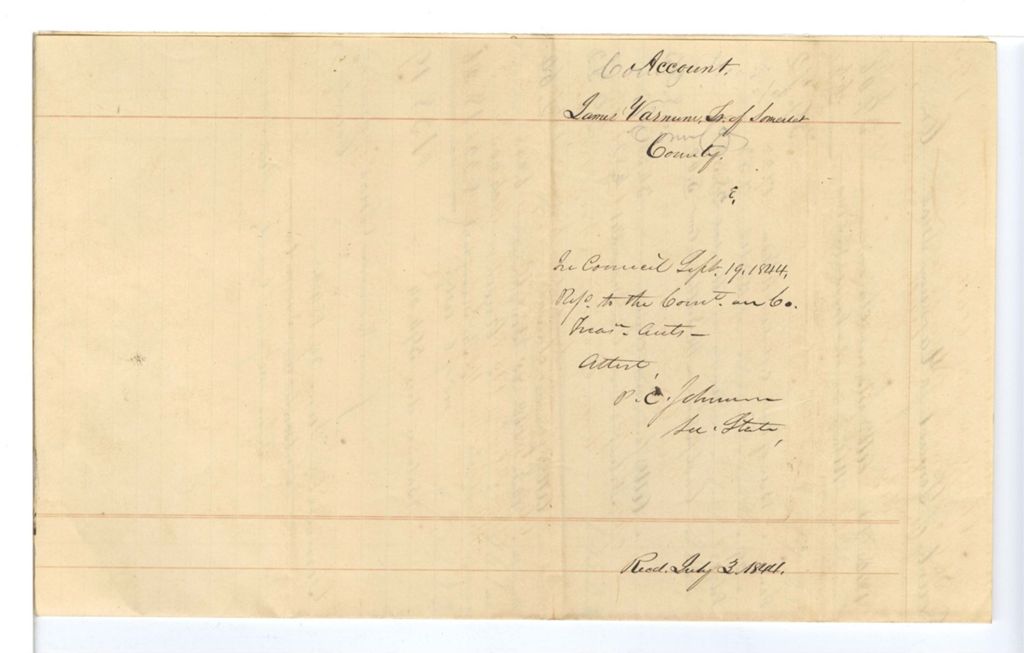 Account,
James Varnum, Tr. of Somerset
County.
In Council Sept. 19, 1844,
Refd. to the Comt. on Co.
Treasr. Accts —
Attest,
P. C. Johnson
Sec. State,
Recd. July 3, 1844.